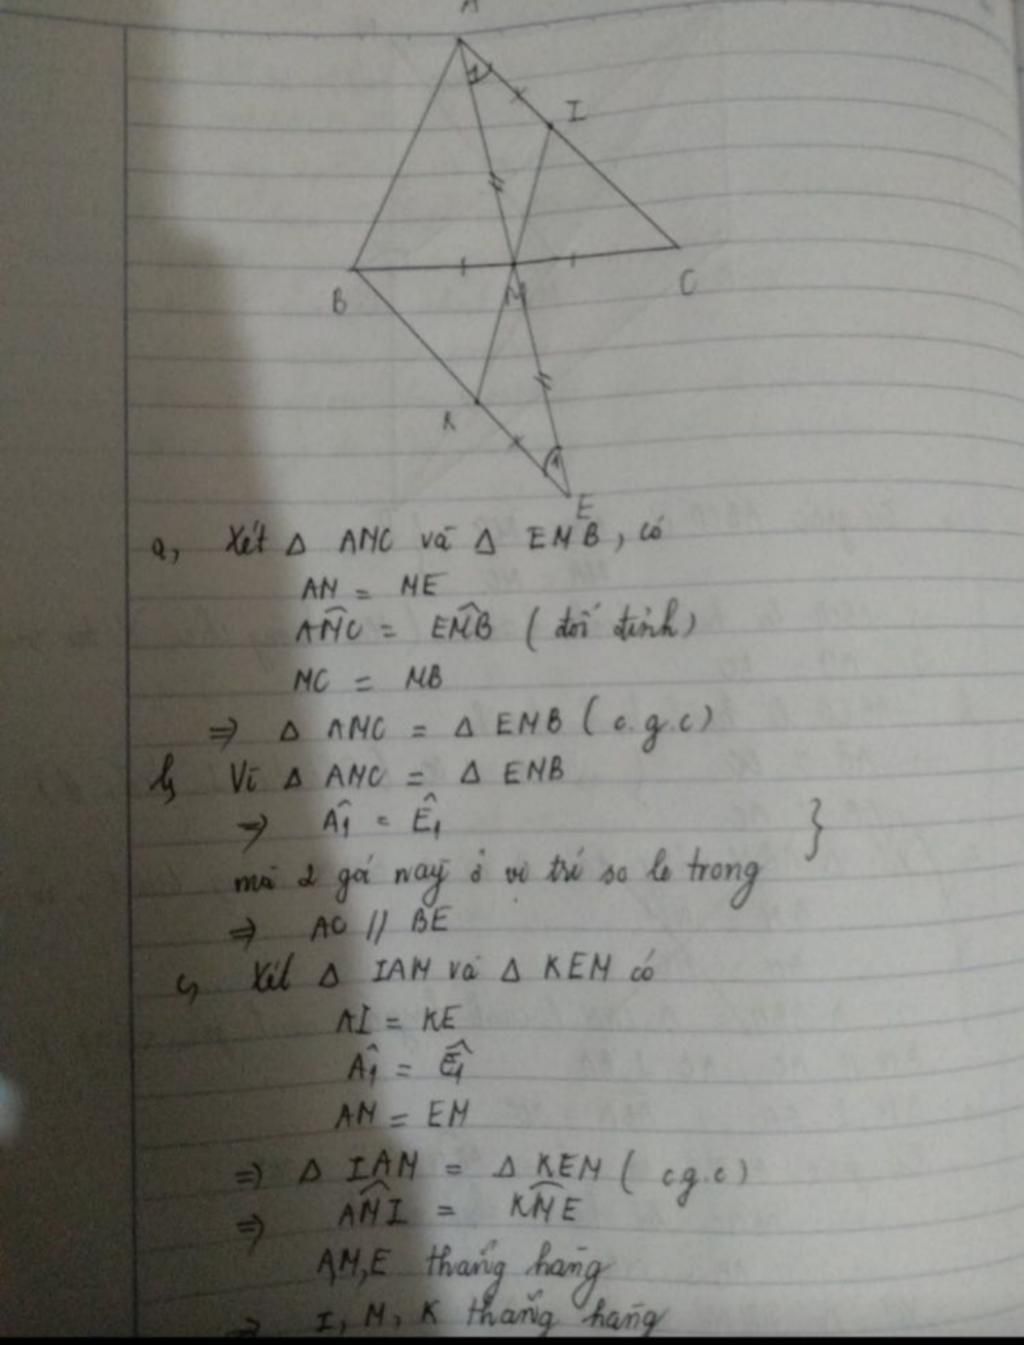 A
1
I
B
M
C
K
1
E
a, Xét Δ AMC và Δ EMB, có
AM = ME
AMC = EMB (đối đỉnh)
MC = MB
⇒ Δ AMC = Δ EMB (c.g.c)
b, Vì Δ AMC = Δ EMB
⇒ Â1 = Ê1 }
mà 2 gó này ở vị trí so le trong
⇒ AC // BE
c, Xét Δ IAM và Δ KEM có
AI = KE
Â1 = Ê1
AM = EM
⇒ Δ IAM = Δ KEM (c.g.c)
⇒ AMI = KME
A,M,E thẳng hàng
⇒ I, M, K thẳng hàng